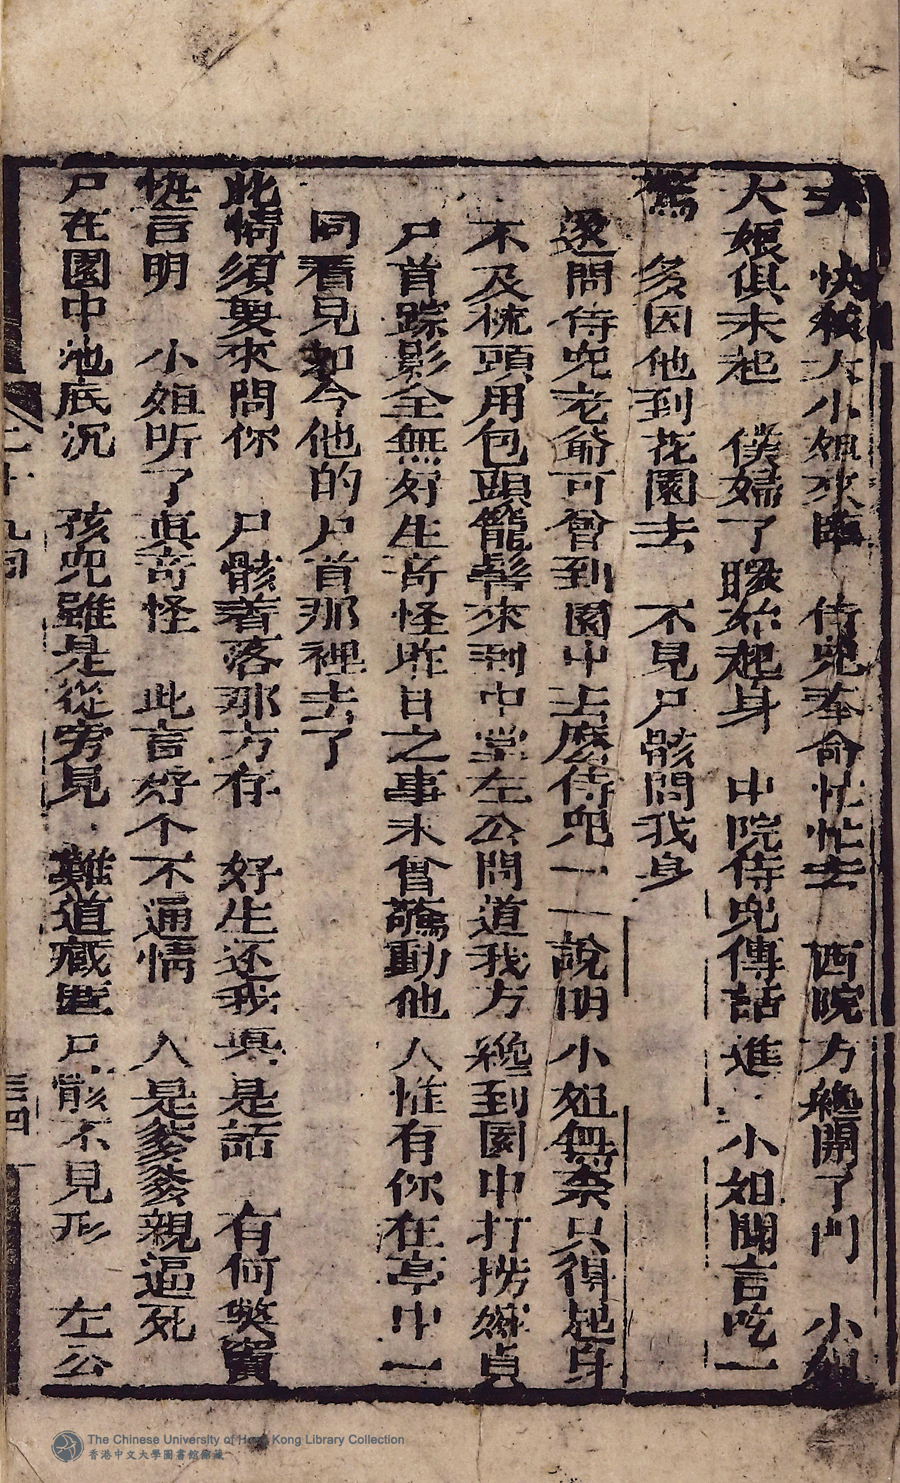 去　快稱大小姐來臨　侍兒奉命忙忙去　西院方纔開了門　小姐
大娘俱未起　僕婦了嬛始起身　中院侍兒傳話進　小姐聞言吃一
驚　多因他到花園去　不見尸骸問我身
遂問侍兒老爺可曾到園中去麼侍兒一一說明小姐無奈只得起身
不及梳頭用包頭籠髻來到中堂左公問道我方纔到園中打撈儀貞
尸首踪影全無好生奇怪昨日之事未曾驚動他人惟有你在亭中一
同看見如今他的尸首那裡去了
此情須要來問你　尸骸着落那方存　好生还我真是話　有何獘竇
快言明　小姐听了真奇怪　此言好个不通情　人是爹爹親逼死
尸在園中池底沉　孩兒雖是從旁見　難道藏匿尸骸不見形　左公
二十九囬
三四
The Chinese University of Hong Kong Library Collection
香港中文大學圖書館館藏